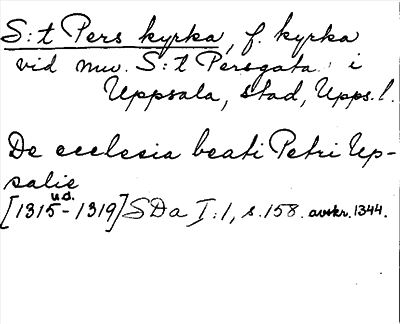 S:t Pers kyrka, f. kyrka
vid nuv. S:t Persgata i
Uppsala, stad, Upps. l.
De ecclesia beati Petri Up-
salie
u.d.
[1315-1319] SDa I:1, s. 158. avskr. 1344.